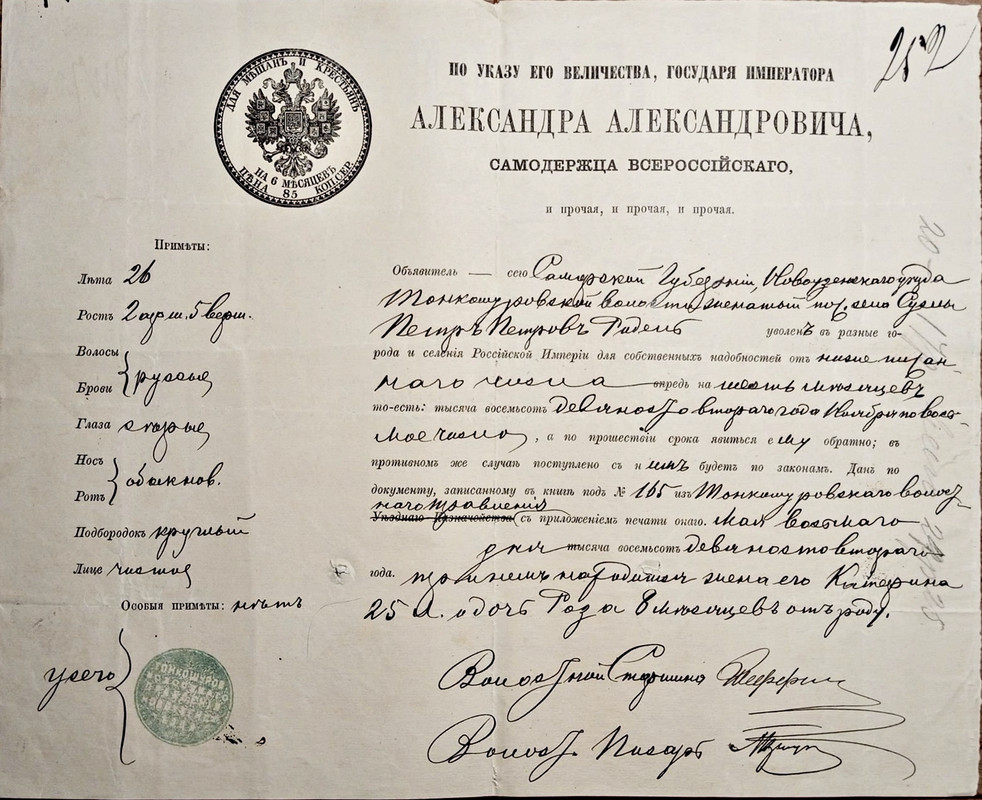 252
ДЛЯ МѢЩАНЪ И КРЕСТЬЯНЪ
НА 6 МѢСЯЦЕВЪ
ЦѢНА 85 КОП. СЕР.
ПО УКАЗУ ЕГО ВЕЛИЧЕСТВА, ГОСУДАРЯ ИМПЕРАТОРА
АЛЕКСАНДРА АЛЕКСАНДРОВИЧА,
САМОДЕРЖЦА ВСЕРОССІЙСКАГО,
и прочая, и прочая, и прочая.
Примѣты:
Лѣта 26
Ростъ 2 арш. 5 верш.
Волосы
Брови } русые
Глаза сѣрые
Носъ
Ротъ } обыкнов.
Подбородокъ круглый
Лице чистое
Особыя примѣты: нѣтъ
у сего
ТОНКОШУРОВ
Объявитель — сего Самарской Губерніи, Новоузенскаго уѣзда
Тонкошуровской волости женатый пос.
Петръ Петровъ уволенъ въ разные го-
рода и селенія Россійской Имперіи для собственныхъ надобностей отъ нижеписан
наго числа впредь на шесть мѣсяцевъ
то-есть: тысяча восемьсотъ девяносто втораго года Ноября по вось-
мое число, а по прошествіи срока явиться ему обратно; въ
противномъ же случаѣ поступлено съ нимъ будетъ по законамъ. Данъ по
документу, записанному въ книгѣ подъ № 165 изъ Тонкошуровскаго волост
наго правленія
Уѣзднаго Казначейства съ приложеніемъ печати онаго. Мая восьмаго
дня тысяча восемьсотъ девяносто втораго
года. При немъ жена его Катерина
25 л. и дочь Роза 8 мѣсяцевъ отъ роду.
Волостной Старшина
Волост. Писарь